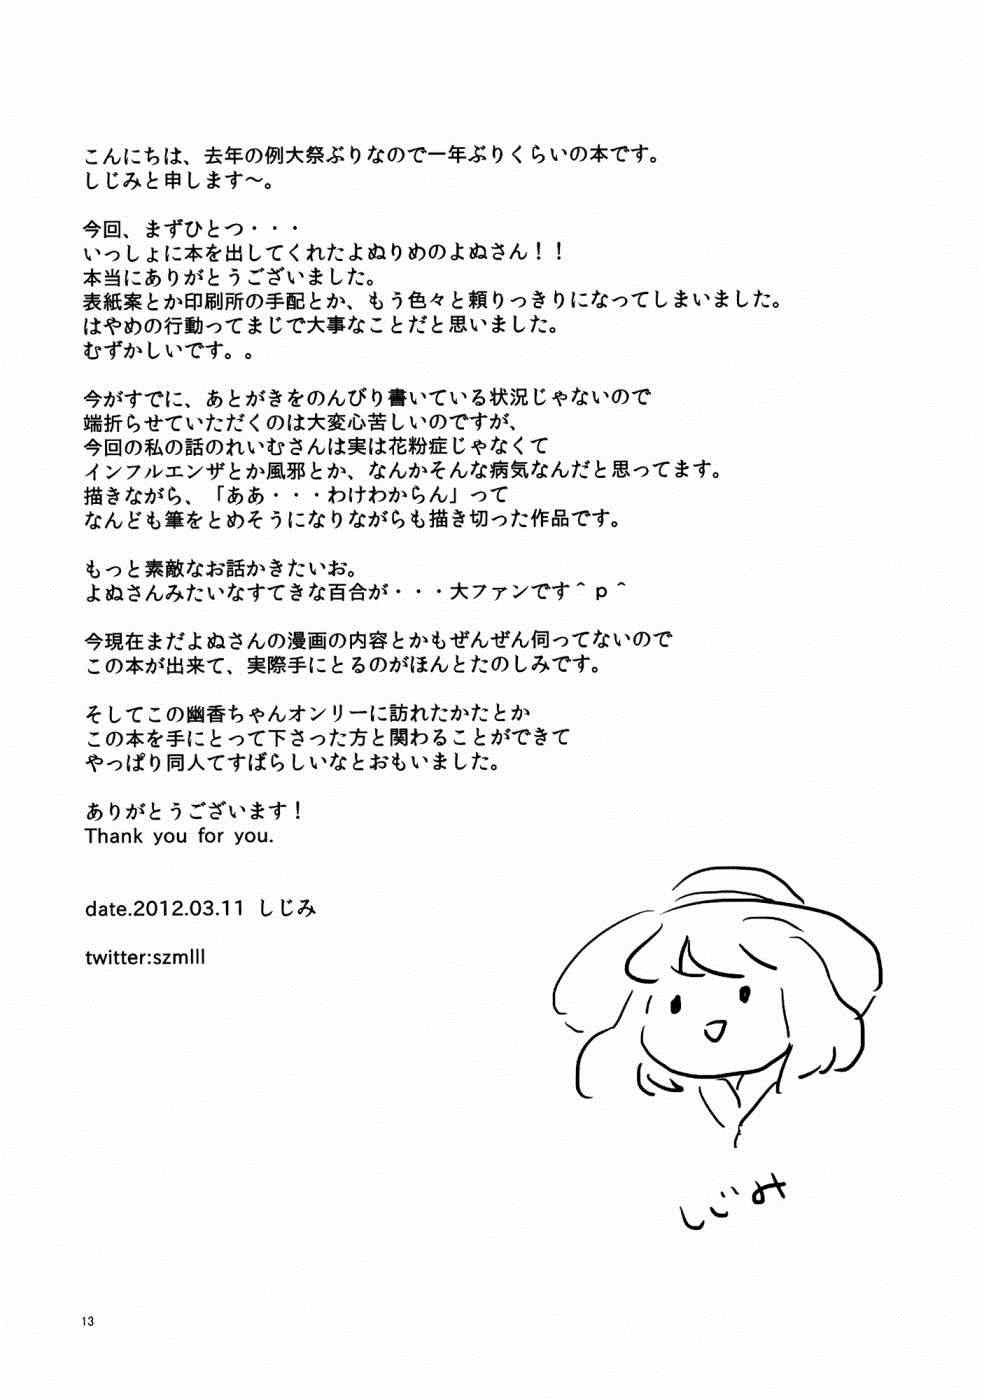 こんにちは、去年の例大祭ぶりなので一年ぶりくらいの本です。
しじみと申します～。
今回、まずひとつ・・・
いっしょに本を出してくれたよぬりめのよぬさん！！
本当にありがとうございました。
表紙案とか印刷所の手配とか、もう色々と頼りっきりになってしまいました。
はやめの行動ってまじで大事なことだと思いました。
むずかしいです。。
今がすでに、あとがきをのんびり書いている状況じゃないので
端折らせていただくのは大変心苦しいのですが、
今回の私の話のれいむさんは実は花粉症じゃなくて
インフルエンザとか風邪とか、なんかそんな病気なんだと思ってます。
描きながら、「ああ・・・わけわからん」って
なんども筆をとめそうになりながらも描き切った作品です。
もっと素敵なお話かきたいお。
よぬさんみたいなすてきな百合が・・・大ファンです＾ｐ＾
今現在まだよぬさんの漫画の内容とかもぜんぜん伺ってないので
この本が出来て、実際手にとるのがほんとたのしみです。
そしてこの幽香ちゃんオンリーに訪れたかたとか
この本を手にとって下さった方と関わることができて
やっぱり同人てすばらしいなとおもいました。
ありがとうございます！
Thank you for you.
date.2012.03.11 しじみ
twitter:szmlll
しじみ
13